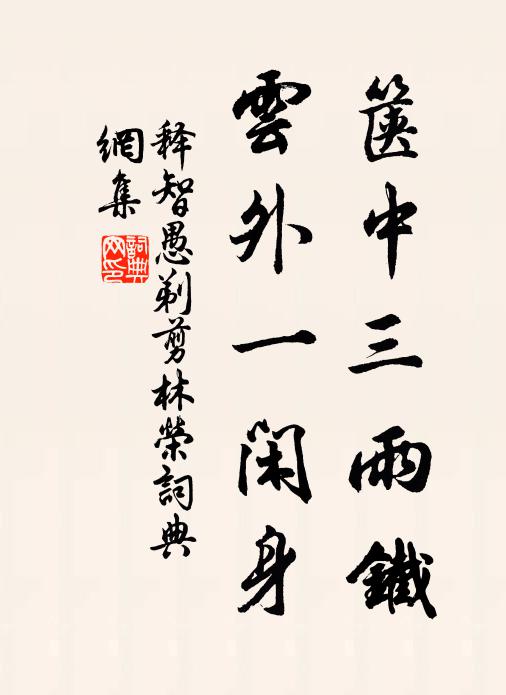 篋中三兩鐵
雲外一閑身
释智愚剃剪林荣詞典
網集
詞典网印